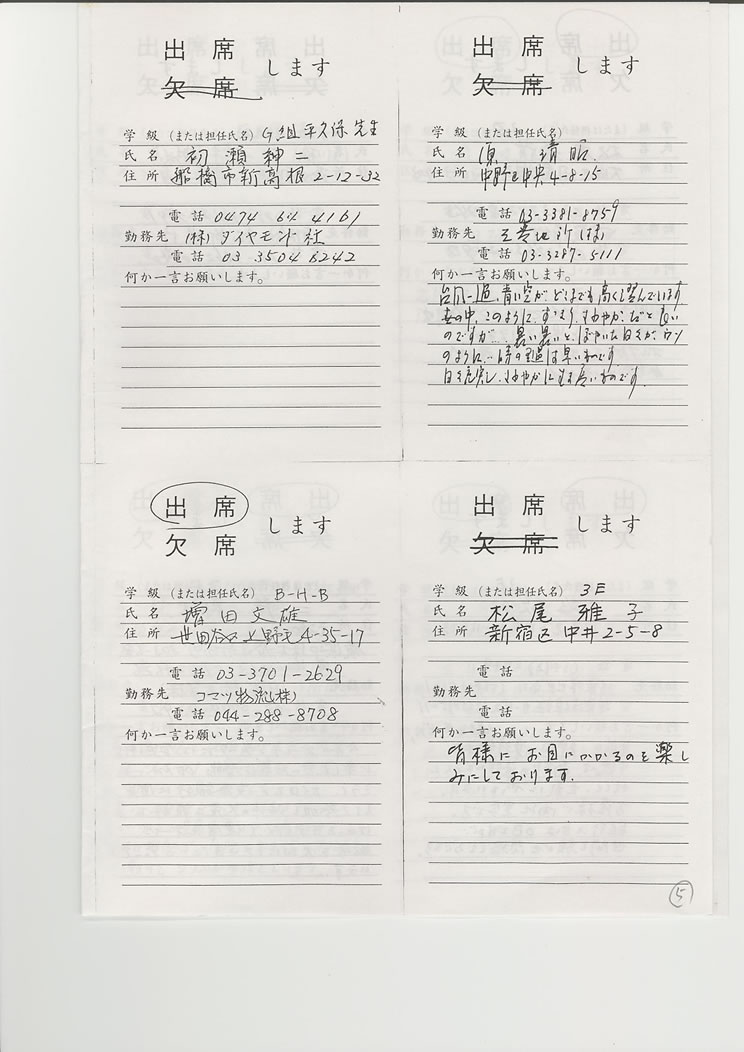 出席
欠席
します
学級（または担任氏名）G組 平久保先生
氏名 初瀬紳二
住所 船橋市新高根2-12-32
電話 0474 64 4161
勤務先 (株)ダイヤモンド社
電話 03 3504 6242
何か一言お願いします。
出席
欠席
します
学級（または担任氏名）
氏名 原 靖昭
住所 中野区中央4-8-15
電話 03-3381-8759
勤務先 三菱地所(株)
電話 03-3287-5111
何か一言お願いします。
台風一過、青い空がどこまでも高く澄んでいます
世の中、このように、すっきり、さわやか、だと良い
のですが… 暑い暑いと、ぼやいた日々が、ウソ
のように… 時の過は早いものです
日々充実し、さわやかに
出席
欠席
します
学級（または担任氏名）B-H-B
氏名 増田文雄
住所 世田谷区上野毛4-35-17
電話 03-3701-2629
勤務先 コマツ物流(株)
電話 044-288-8708
何か一言お願いします。
出席
欠席
します
学級（または担任氏名）3E
氏名 松尾雅子
住所 新宿区中井2-5-8
電話
勤務先
電話
何か一言お願いします。
皆様に お目にかかるのを楽し
みにしております.
5